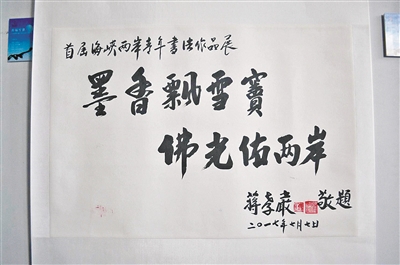 首屆海峽两岸青年書法作品展
墨香飄雪竇
佛光佑兩岸
蔣孝嚴 敬題
二〇一七年七月七日